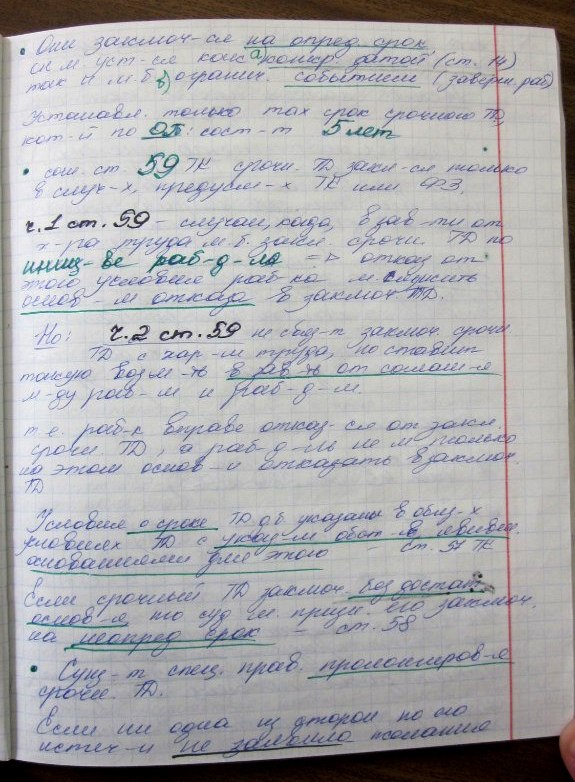 • Они заключ-ся на опред. срок
он м. уст-ся как а) конкр. датой (ст. 14)
так и м.б. б) огранич. событием (заверш. раб)
Установл. только max срок срочного ТД,
кот-й по ОП: сост-т 5 лет
• согл. ст. 59 ТК срочн. ТД закл-ся только
в случ-х, предусм-х ТК или ФЗ,
ч.1 ст. 59 – случаи, когда, в зав-ти от
х-ра труда м.б. закл. срочн. ТД по
иниц-ве раб-д-ля => отказ от
этого условия раб-ка м. служить
основ-м отказа в заключ. ТД.
Но: ч.2 ст. 59 не связ-т заключ. срочн.
ТД с хар-м труда, но ставит
такую возм-ть в зав-ть от соглаш-я
м-ду раб-м и раб-д-м.
т.е. раб-к вправе отказ-ся от закл.
срочн. ТД, а раб-д-ль не м. только
на этом основ-и отказать в заключ.
ТД
Условие о сроке ТД дб указаны в обяз-х
условиях ТД с указ-м обст-в, явивш.
основаниями для этого – ст. 57 ТК
Если срочный ТД заключ. без достат.
основ-я, то суд м. призн. его заключ.
на неопред срок – ст. 58
• Сущ-т спец. прав. пролонгиров-я
срочн. ТД.
Если ни одна из сторон по его
истеч-и не заявила желания